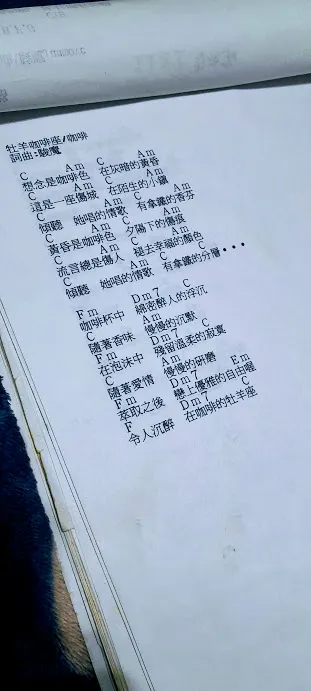 牡羊咖啡座/咖啡
詞曲:駿魔
C Am C Am
想念是咖啡色 在灰暗的黃昏
C Am C Am
這是一座傷城 在陌生的小鎮
C Am C Am
傾聽 她唱的情歌 有拿鐵的香芬
C Am C Am
黃昏是咖啡色 夕陽下的傷痕
C Am C Am
流言總是傷人 褪去幸福的顏色
C Am C
傾聽 她唱的情歌 有拿鐵的分層•••
Fm Dm7 C
咖啡杯中 綿密醉人的浮沉
C Am
隨著香味 慢慢的沉默
Fm Dm7 C
在泡沫中 殘留溫柔的寂寞
C Am
隨著愛情 慢慢的研磨
Fm Dm7 Em
萃取之後 戀上優雅的自由
F Dm7 C
令人沉醉 在咖啡的牡羊座